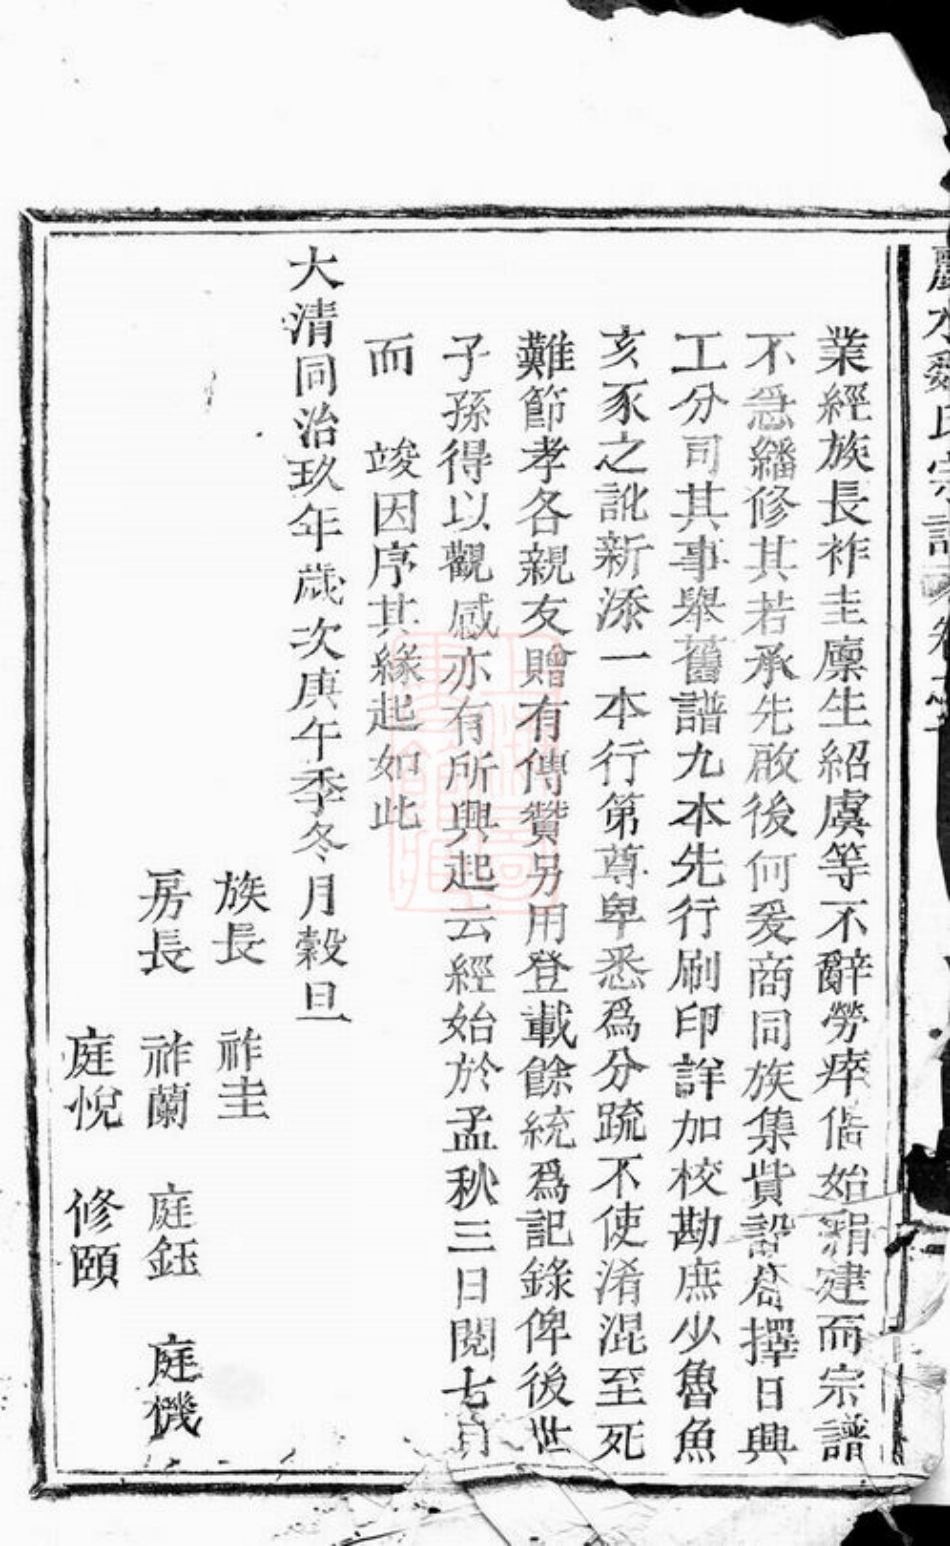 麗水魏氏宗譜卷之
業經族長祚圭廩生紹虞等不辭勞瘁偕始捐建而宗譜
不急繙修其若承先啟後何爰商同族集貲設局擇日興
工分司其事舉舊譜九本先行刷印詳加校勘庶少魯魚
亥豕之訛新添一本行第尊卑悉爲分疏不使淆混至死
難節孝各親友贈有傳贊另用登載餘統爲記錄俾後世
子孫得以觀感亦有所興起云經始於孟秋三日閱七月
而竣因序其緣起如此
大清同治玖年歲次庚午季冬月穀旦
族長 祚圭
房長 祚蘭 庭鈺 庭機
庭悅 修頤